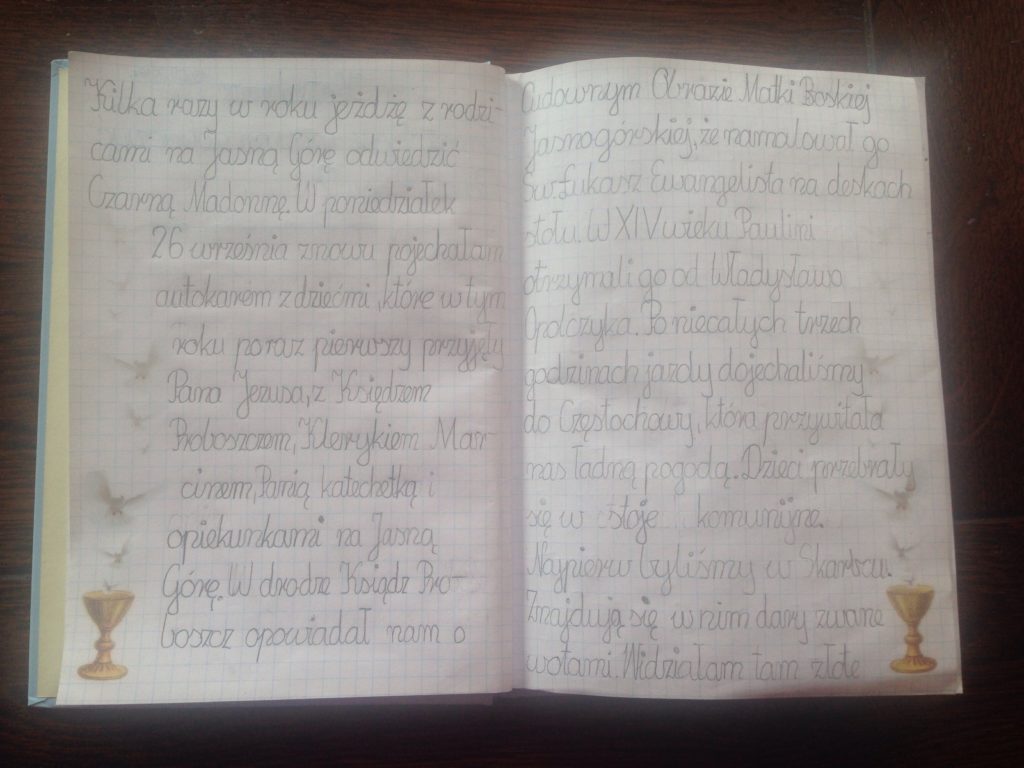 Kilka razy w roku jeżdżę z rodzi-
cami na Jasną Górę odwiedzić
Czarną Madonnę. W poniedziałek
26 września znowu pojechałam
autokarem z dziećmi, które w tym
roku poraz pierwszy przyjęły
Pana Jezusa, z Księdzem
Proboszczem, Klerykiem Mar-
cinem, Panią katechetką i
opiekunkami na Jasną
Górę. W drodze Ksiądz Pro-
boszcz opowiadał nam o
Cudownym Obrazie Matki Boskiej
Jasnogórskiej, że namalował go
Św. Łukasz Ewangelista na deskach
stołu. W XIV wieku Paulini
otrzymali go od Władysława
Opolczyka. Po niecałych trzech
godzinach jazdy dojechaliśmy
do Częstochowy, która przywitała
nas ładną pogodą. Dzieci przebrały
się w stroje komunijne.
Najpierw byliśmy w Skarbcu.
Znajdują się w nim dary zwane
wotami. Widziałam tam złote